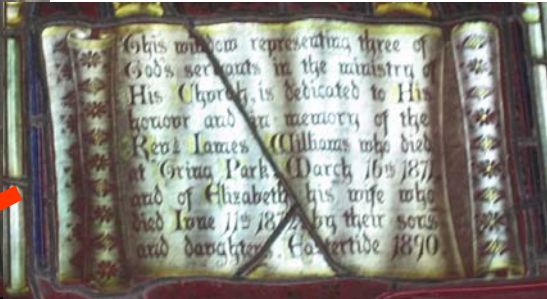 This window representing three of
God's servants in the ministry of
His Church, is dedicated to His
honour and in memory of the
Revd James Williams who died
at Tring Park, March 16th 1871,
and of Elizabeth his wife who
died June 11th by their sons
and daughters. Eastertide 1890